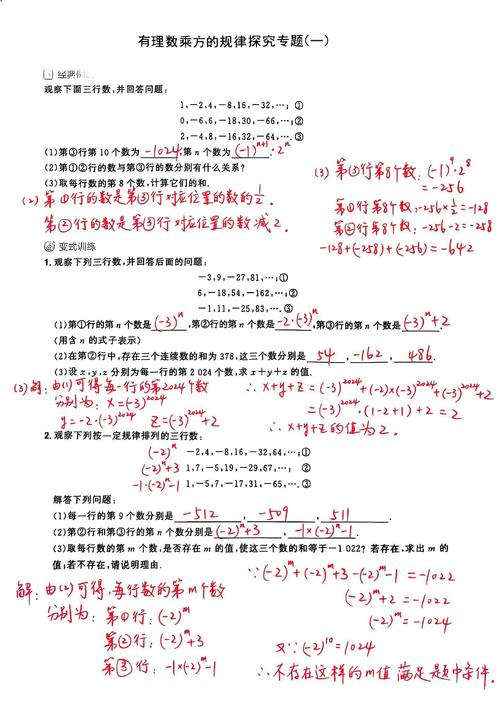 有理数乘方的规律探究专题(一)
经典例
观察下面三行数,并回答问题:
1,-2,4,-8,16,-32,…; ①
0,-6,6,-18,30,-66,…;②
2,-4,8,-16,32,-64,…. ③
(1)第③行第10个数为 -1024,第n个数为 (-1)ⁿ⁺¹·2ⁿ
(2)第①行②行的数与第③行的数分别有什么关系?
(3)取每行数的第8个数,计算它们的和.
(2) 第①行的数是第③行对应位置的数的1/2.
第②行的数是第③行对应位置的数减2.
(3) 第③行第8个数: (-1)⁹·2⁸
= -256
第①行第8个数: -256×1/2 = -128
第②行第8个数: -256-2 = -258
-128+(-258)+(-256) = -642
变式训练
1.观察下列三行数,并回答后面的问题:
-3,9,-27,81,…;①
6,-18,54,-162,…;②
-1,11,-25,83,…. ③
(1)第①行的第n个数是 (-3)ⁿ ,第②行的第n个数是 -2·(-3)ⁿ ,第③行的第n个数是 (-3)ⁿ+2
(用含n的式子表示)
(2)在第②行中,存在三个连续数的和为378,这三个数分别是 54 , -162 , 486 .
(3)设x,y,z分别为每一行的第2 024个数,求x+y+z的值.
(3) 解: 由(1)可得每一行的第2024个数
分别为: x=(-3)²⁰²⁴
y=-2·(-3)²⁰²⁴ z=(-3)²⁰²⁴+2
∴ x+y+z=(-3)²⁰²⁴+(-2)×(-3)²⁰²⁴+(-3)²⁰²⁴+2
=(-3)²⁰²⁴·(1-2+1)+2=2
∴ x+y+z的值为2.
2.观察下列按一定规律排列的三行数:
(-2)ⁿ -2,4,-8,16,-32,64,…;①
(-2)ⁿ+3 1,7,-5,19,-29,67,…; ②
-1·(-2)ⁿ-1 1,-5,7,-17,31,-65,…. ③
解答下列问题:
(1)每一行的第9个数分别是 -512 , -509 , 511 .
(2)第②行和第③行的第n个数分别是 (-2)ⁿ+3 , -1×(-2)ⁿ-1 .
(3)取每行数的第m个数,是否存在m的值,使这三个数的和等于-1 022? 若存在,求出m的
值;若不存在,请说明理由.
解: 由(2)可得,每行数的第m个数
分别为: 第①行: (-2)ᵐ
第②行: (-2)ᵐ+3
第③行: -1×(-2)ᵐ-1
∵(-2)ᵐ+(-2)ᵐ+3-(-2)ᵐ-1=-1022
(-2)ᵐ+2=-1022
(-2)ᵐ=-1024
又∵(-2)¹⁰=1024
∴不存在这样的m值满足题中条件.